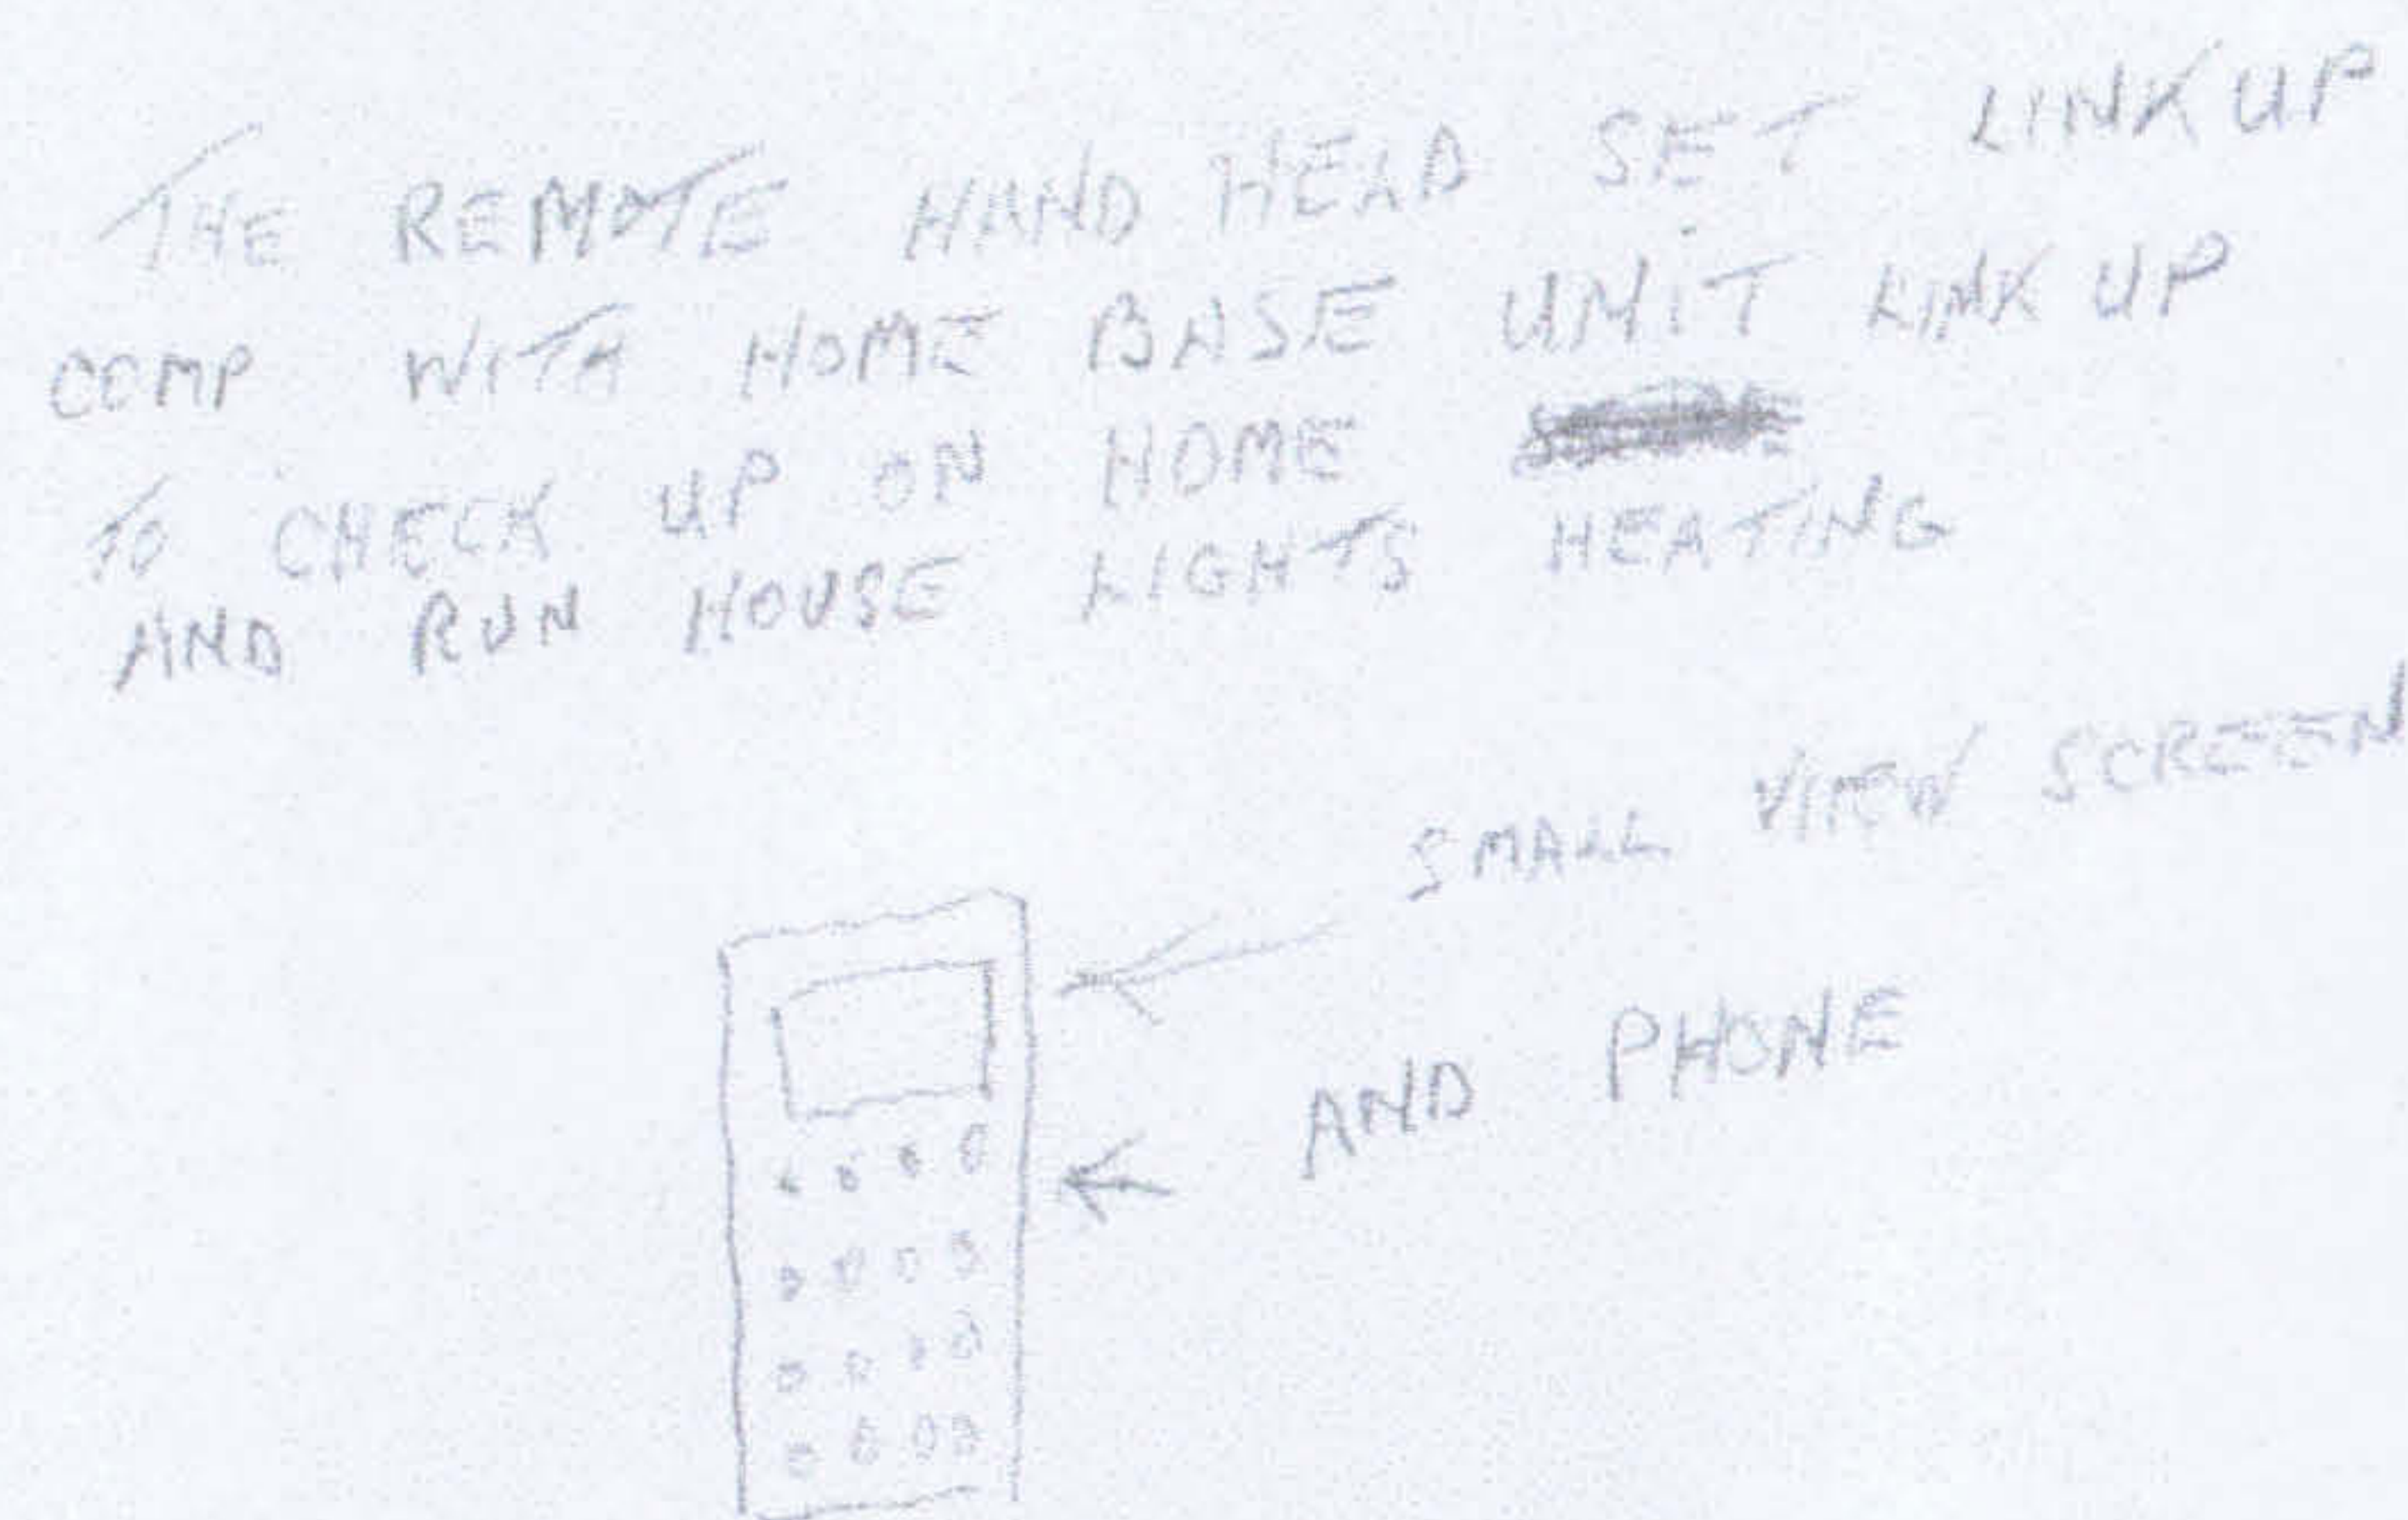 THE REMOTE HAND HEAD SET LINK UP
COMP WITH HOME BASE UNIT LINK UP
TO CHECK UP ON HOME
AND RUN HOUSE LIGHTS HEATING
SMALL VIEW SCREEN
AND PHONE